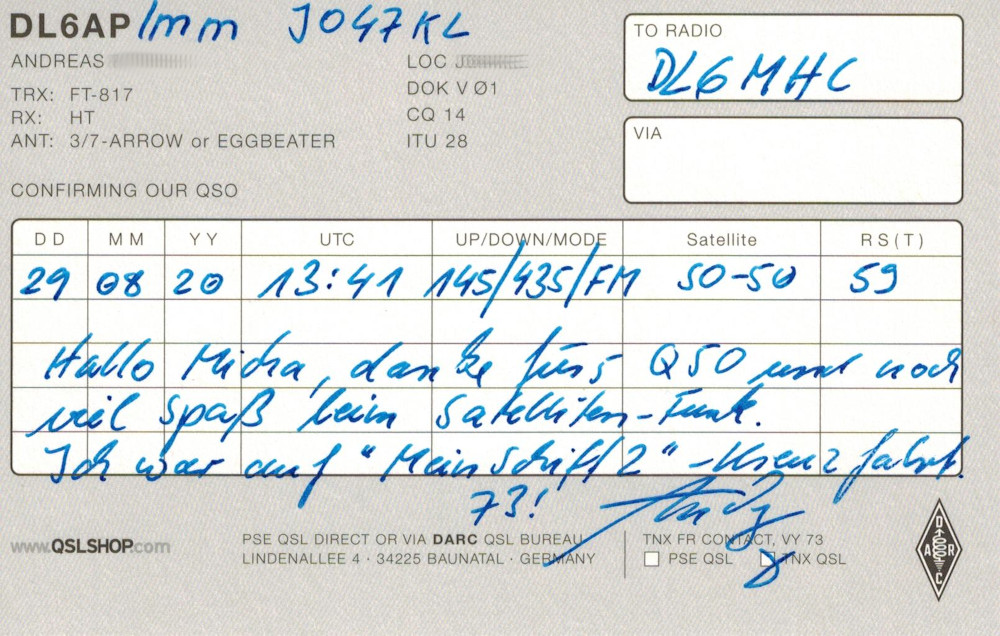 DL6AP/mm JO47KL
ANDREAS LOC J
TRX: FT-817 DOK V Ø1
RX: HT CQ 14
ANT: 3/7-ARROW or EGGBEATER ITU 28
TO RADIO
DL6MHC
VIA
CONFIRMING OUR QSO
DD MM YY UTC UP/DOWN/MODE Satellite RS(T)
29 08 20 13:41 145/435/FM SO-50 59
Hallo Micha, danke fürs QSO und noch
viel Spaß beim Satelliten-Funk.
Ich war auf "Mein Schiff 2" -Kreuzfahrt.
73! Andy
www.QSLSHOP.com
PSE QSL DIRECT OR VIA DARC QSL BUREAU
LINDENALLEE 4 · 34225 BAUNATAL · GERMANY
TNX FR CONTACT, VY 73
PSE QSL TNX QSL
DARC